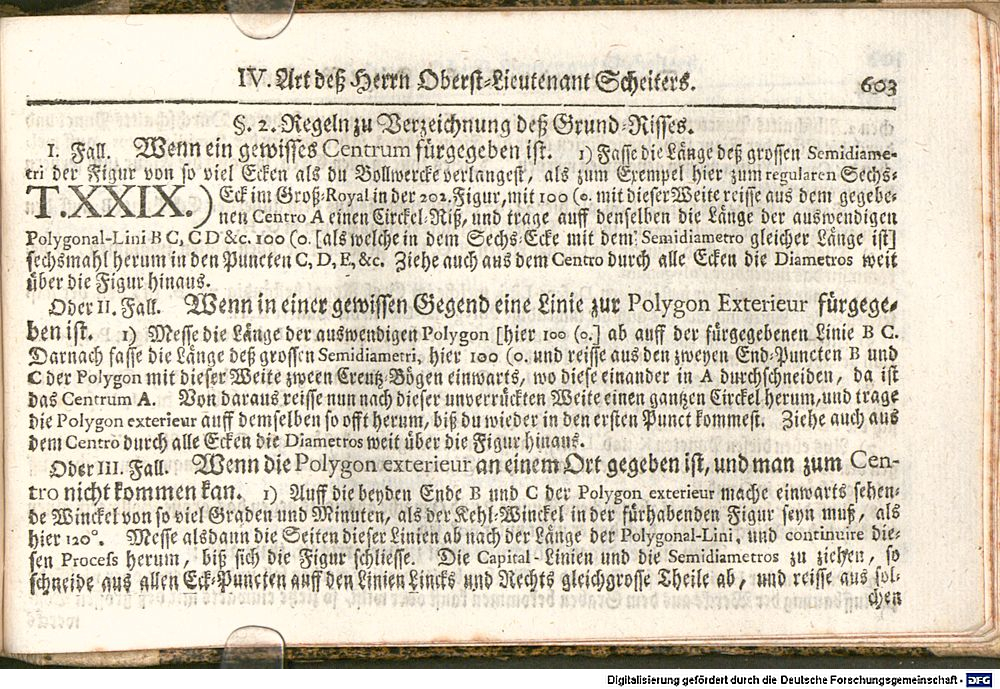 IV. Art deß Herrn Oberst-Lieutenant Scheiters. 603
§. 2. Regeln zu Verzeichnung deß Grund-Risses.
I. Fall. Wenn ein gewisses Centrum fürgegeben ist. 1) Fasse die Länge deß grossen Semidiame-
tri der Figur von so viel Ecken als du Bollwercke verlangest, als zum Exempel hier zum regularen Sechs-
T.XXIX.) Eck im Groß-Royal in der 202. Figur, mit 100 (0. mit dieser Weite reisse aus dem gegebe-
nen Centro A einen Circkel-Riß, und trage auff denselben die Länge der auswendigen
Polygonal-Lini B C, C D &c. 100 (0. [als welche in dem Sechs-Ecke mit dem Semidiametro gleicher Länge ist]
sechsmahl herum in den Puncten C, D, E, &c. Ziehe auch aus dem Centro durch alle Ecken die Diametros weit
über die Figur hinaus.
Oder II. Fall. Wenn in einer gewissen Gegend eine Linie zur Polygon Exterieur fürgege-
ben ist. 1) Messe die Länge der auswendigen Polygon [hier 100 (0.] ab auff der fürgegebenen Linie B C.
Darnach fasse die Länge deß grossen Semidiametri, hier 100 (0. und reisse aus den zweyen End-Puncten B und
C der Polygon mit dieser Weite zween Creutz-Bögen einwarts, wo diese einander in A durchschneiden, da ist
das Centrum A. Von daraus reisse nun nach dieser unverrückten Weite einen gantzen Circkel herum, und trage
die Polygon exterieur auff demselben so offt herum, biß du wieder in den ersten Punct kommest. Ziehe auch aus
dem Centro durch alle Ecken die Diametros weit über die Figur hinaus.
Oder III. Fall. Wenn die Polygon exterieur an einem Ort gegeben ist, und man zum Cen-
tro nicht kommen kan. 1) Auff die beyden Ende B und C der Polygon exterieur mache einwarts sehen-
de Winckel von so viel Graden und Minuten, als der Kehl-Winckel in der fürhabenden Figur seyn muß, als
hier 120°. Messe alsdann die Seiten dieser Linien ab nach der Länge der Polygonal-Lini, und continuire die-
sen Process herum, biß sich die Figur schliesse. Die Capital-Linien und die Semidiametros zu ziehen, so
schneide aus allen Eck-Puncten auff den Linien Lincks und Rechts gleichgrosse Theile ab, und reisse aus sol-
chen
Digitalisierung gefördert durch die Deutsche Forschungsgemeinschaft - DFG